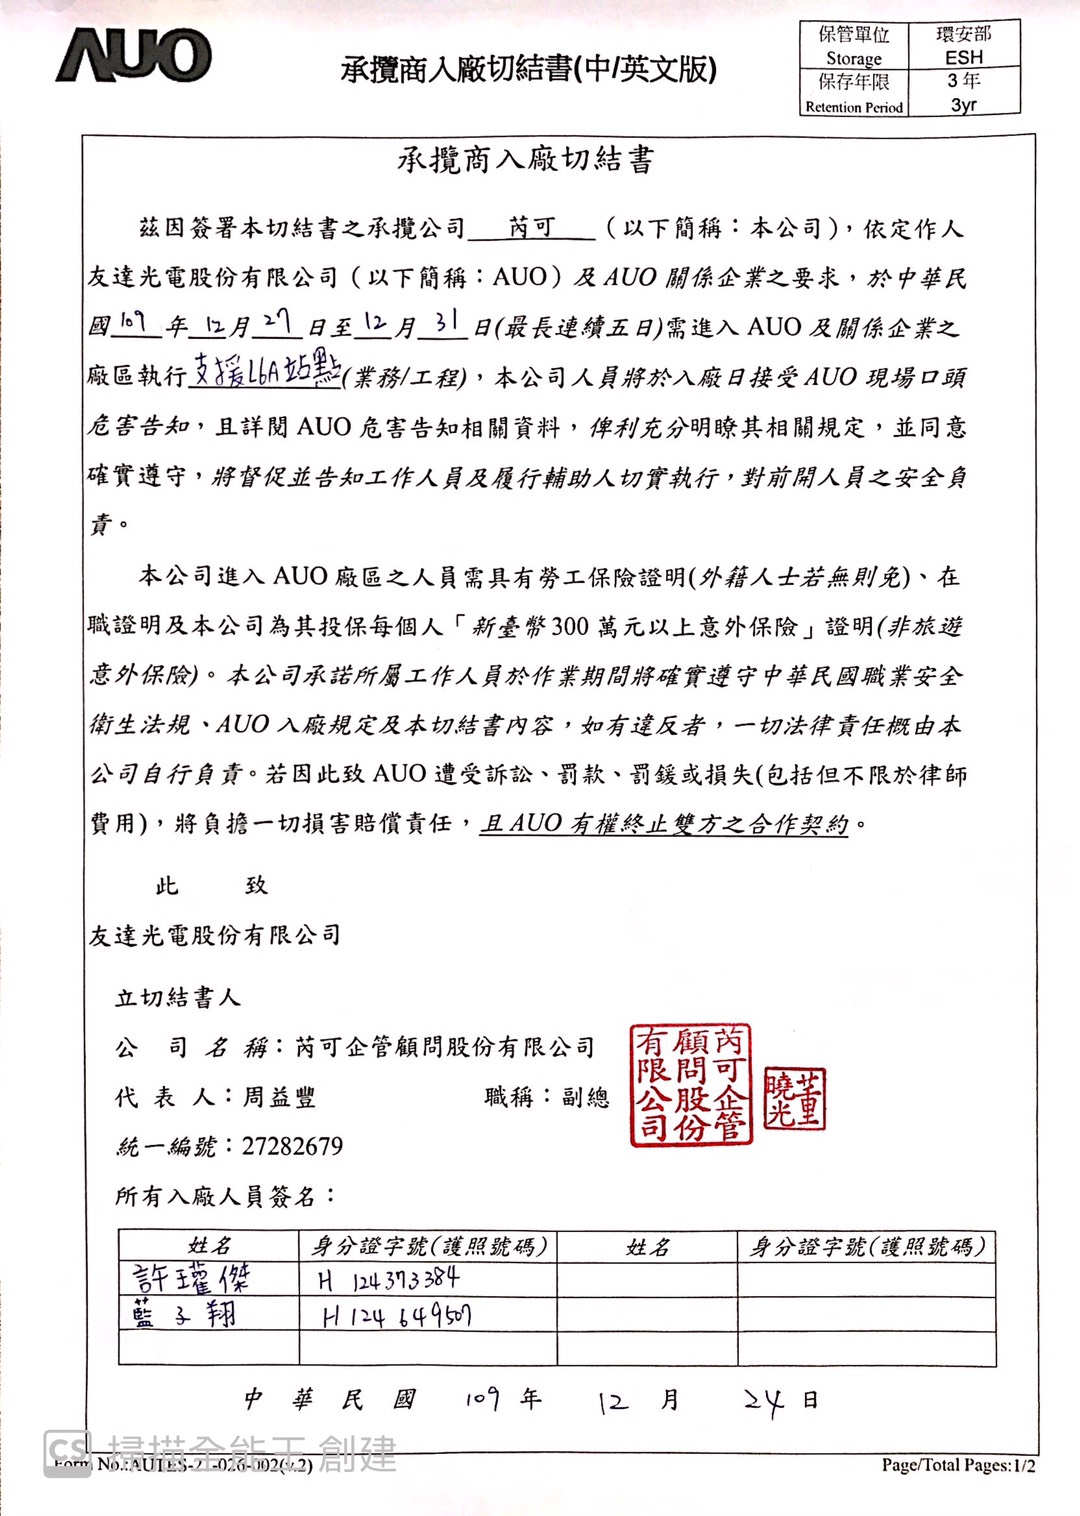 AUO
承攬商入廠切結書(中/英文版)
保管單位 環安部
Storage ESH
保存年限 3 年
Retention Period 3yr
承攬商入廠切結書
茲因簽署本切結書之承攬公司 芮可 （以下簡稱：本公司），依定作人
友達光電股份有限公司（以下簡稱：AUO）及 AUO 關係企業之要求，於中華民
國 109 年 12 月 27 日至 12 月 31 日(最長連續五日)需進入 AUO 及關係企業之
廠區執行 支援L6A站點 (業務/工程)，本公司人員將於入廠日接受 AUO 現場口頭
危害告知，且詳閱 AUO 危害告知相關資料，俾利充分明瞭其相關規定，並同意
確實遵守，將督促並告知工作人員及履行輔助人切實執行，對前開人員之安全負
責。
本公司進入 AUO 廠區之人員需具有勞工保險證明(外籍人士若無則免)、在
職證明及本公司為其投保每個人「新臺幣 300 萬元以上意外保險」證明(非旅遊
意外保險)。本公司承諾所屬工作人員於作業期間將確實遵守中華民國職業安全
衛生法規、AUO 入廠規定及本切結書內容，如有違反者，一切法律責任概由本
公司自行負責。若因此致 AUO 遭受訴訟、罰款、罰鍰或損失(包括但不限於律師
費用)，將負擔一切損害賠償責任，且 AUO 有權終止雙方之合作契約。
此 致
友達光電股份有限公司
立切結書人
公 司 名 稱：芮可企管顧問股份有限公司
代 表 人：周益豐 職稱：副總
統一編號：27282679
芮可企管顧問股份有限公司
董曉光
所有入廠人員簽名：
姓名 身分證字號(護照號碼) 姓名 身分證字號(護照號碼)
許瓘傑 H 124373384
藍子翔 H 124649507
中 華 民 國 109 年 12 月 24 日
CS 掃描全能王 創建
Form No.:AUTES-21-026-002(v.2) Page/Total Pages:1/2